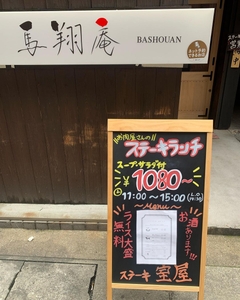 馬翔庵
BASHOUAN
お肉屋さんの!!
ステーキランチ
スープ・サラダ付
¥1080～
11:00～15:00
～Menu～
お酒あります!!!
ライス大盛
無料
ステーキ 室屋